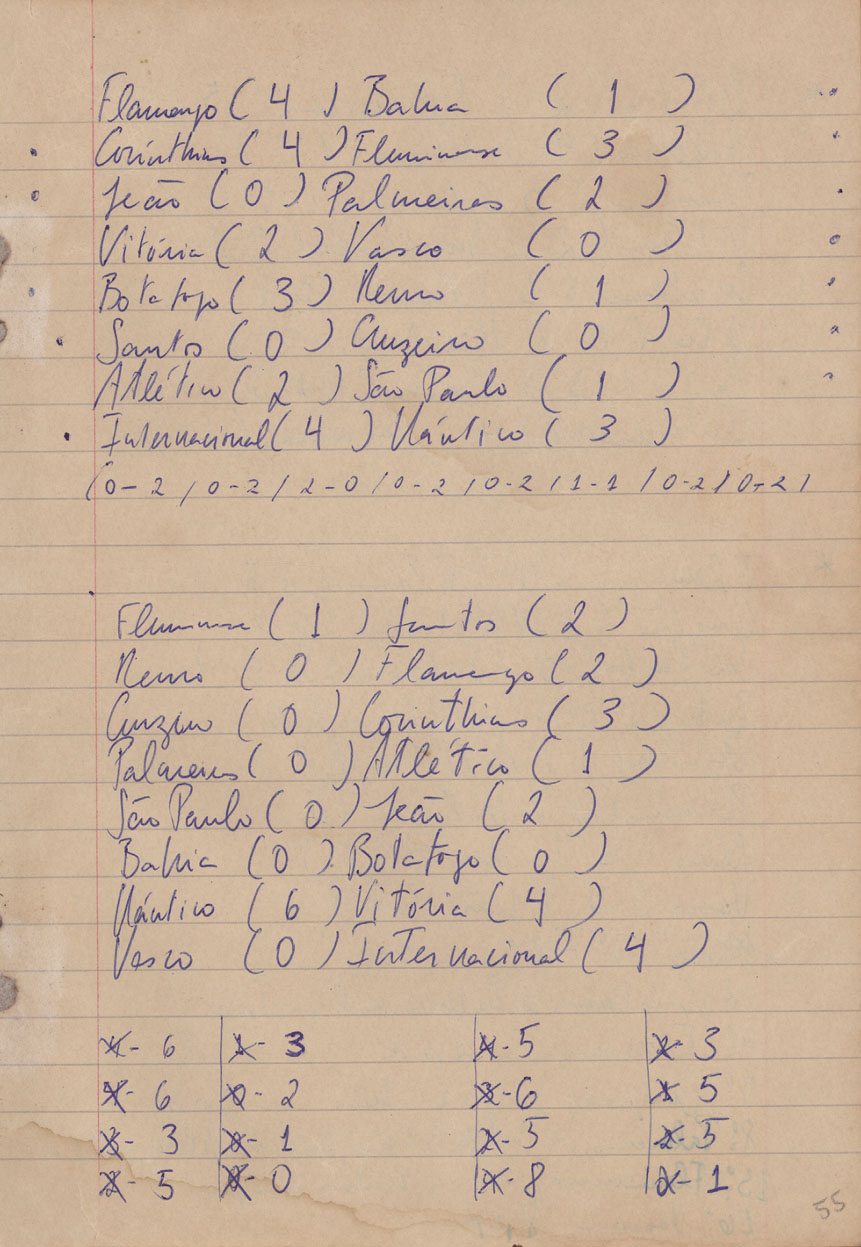 Flamengo ( 4 ) Bahia ( 1 )
Corinthias ( 4 ) Fluminense ( 3 )
Leão ( 0 ) Palmeiras ( 2 )
Vitória ( 2 ) Vasco ( 0 )
Botafogo ( 3 ) Remo ( 1 )
Santos ( 0 ) Cruzeiro ( 0 )
Atlético ( 2 ) São Paulo ( 1 )
Internacional ( 4 ) Náutico ( 3 )
/ 0-2 / 0-2 / 2-0 / 0-2 / 0-2 / 1-1 / 0-2 / 0-2 /
Fluminense ( 1 ) Santos ( 2 )
Remo ( 0 ) Flamengo ( 2 )
Cruzeiro ( 0 ) Corinthias ( 3 )
Palmeiras ( 0 ) Atlético ( 1 )
São Paulo ( 0 ) Leão ( 2 )
Bahia ( 0 ) Botafogo ( 0 )
Náutico ( 6 ) Vitória ( 4 )
Vasco ( 0 ) Internacional ( 4 )
- 6 - 3 - 5 - 3
- 6 - 2 - 6 5
- 3 - 1 - 5 - 5
- 5 - 0 - 8 - 1
55